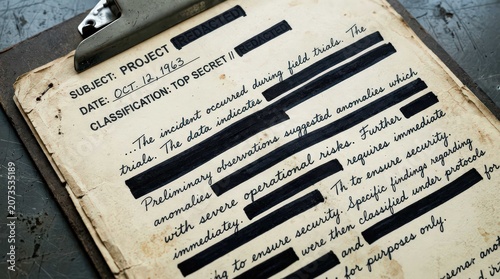 SUBJECT: PROJECT
DATE: OCT. 12, 1963
CLASSIFICATION: TOP SECRET //
...The incident occurred during field trials. The
trials. The data indicates
Preliminary observations suggested anomalies which
anomalies
with severe operational risks. Further
immediatey. requires immediate
Th to ensure security.
ng to ensure security. Specific findings regarding
were then classified under protocols
and for
for purposes only.
Adobe Stock | #2073535189